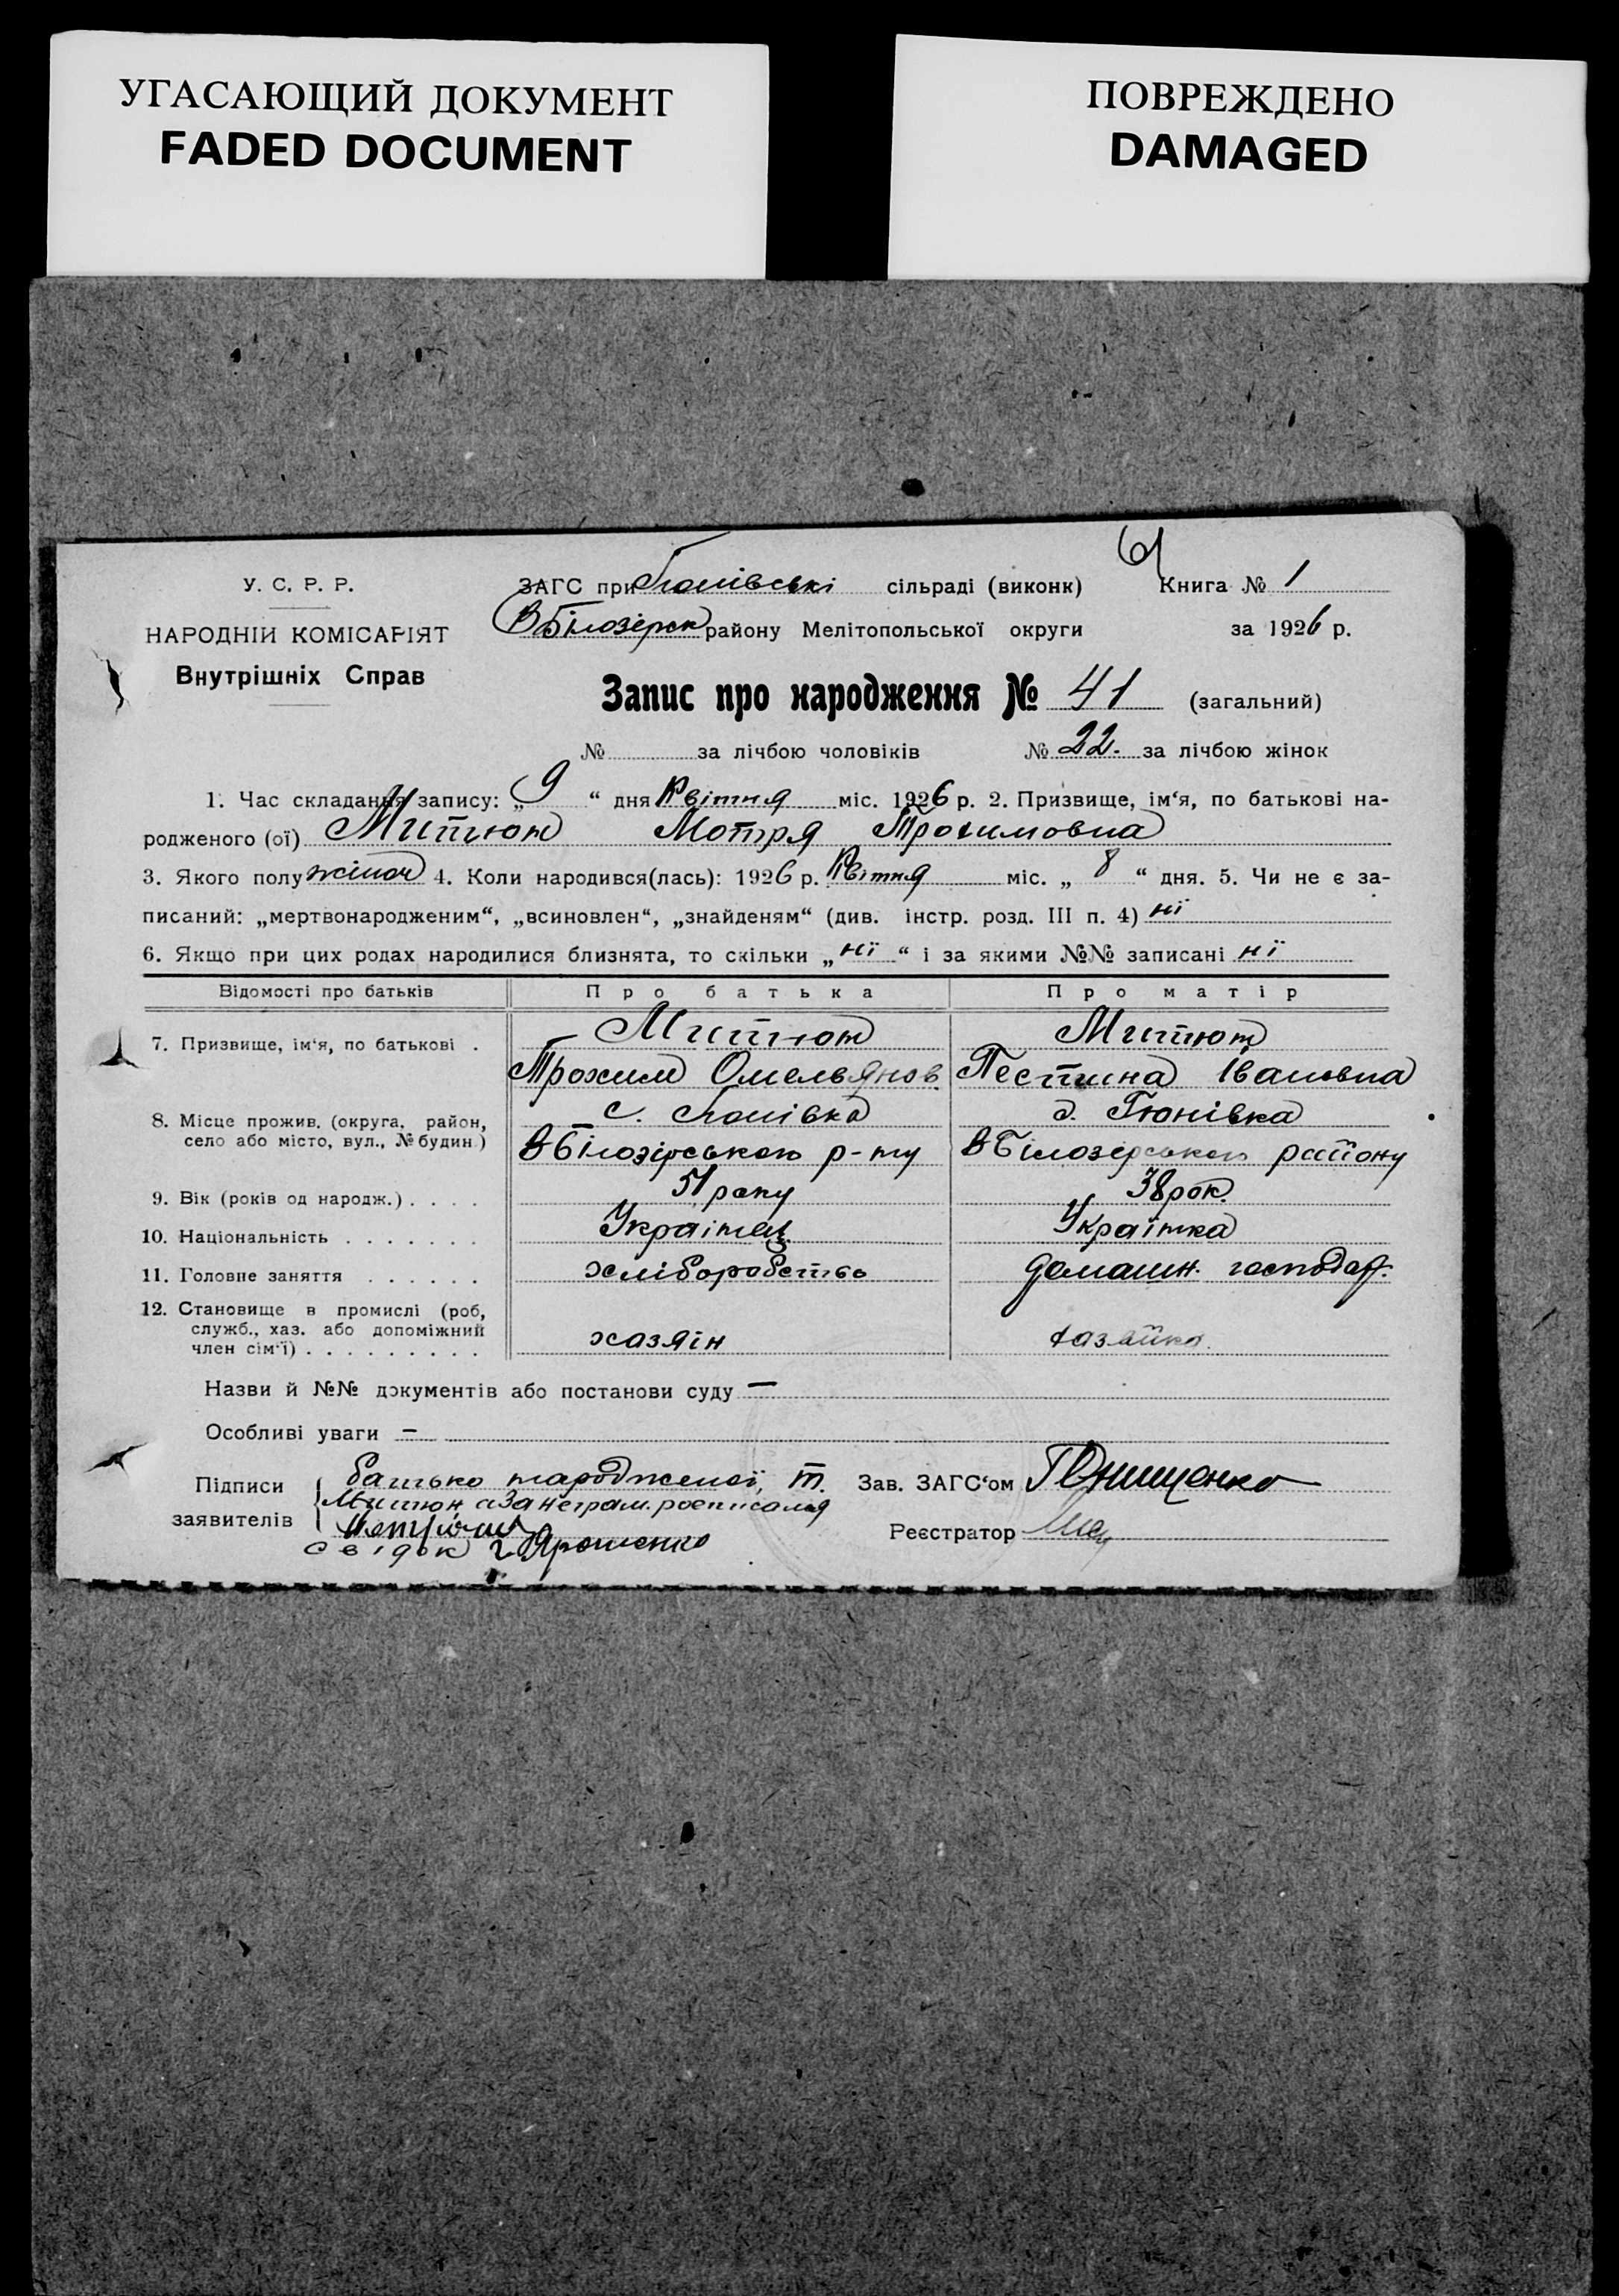 УГАСАЮЩИЙ ДОКУМЕНТ
FADED DOCUMENT
ПОВРЕЖДЕНО
DAMAGED
61
У. С. Р. Р.
НАРОДНІЙ КОМІСАРІЯТ
Внутрішніх Справ
ЗАГС при Гюнівські сільраді (виконк) Книга № 1
ВБілозерск району Мелітопольської округи за 1926 р.
Запис про народження № 41 (загальний)
№ за лічбою чоловіків № 22. за лічбою жінок
1. Час складання запису: „ 9 “ дня Квітня міс. 1926 р. 2. Призвище, ім‘я, по батькові на-
родженого (ої) Митюк Мотря Трохимовна
3. Якого полу жіноч 4. Коли народився(лась): 1926 р. Квітня міс. „ 8 “ дня. 5. Чи не є за-
писаний: „мертвонародженим“, „всиновлен“, „знайденям“ (див. інстр. розд. III п. 4) нї
6. Якщо при цих родах народилися близнята, то скільки „ нї “ і за якими №№ записані нї
Відомості про батьків Про батька Про матір
7. Призвище, ім‘я, по батькові . Митюк Митюк
Трохим Омельянов. Івановна
8. Місце прожив. (округа, район, с. Гюнівка с. Гюнівка
село або місто, вул., № будин.) ВБілозірського р-ну ВБілозерського району
9. Вік (років од народж.) . . . . 51 року 38 рок.
10. Національність . . . . . . . Українец Українка
11. Головне заняття . . . . . . хліборобство домашн. господар.
12. Становище в промислі (роб,
служб., хаз. або допоміжний
член сім‘ї) . . . . . . . . . хазяїн хазяйка.
Назви й №№ документів або постанови суду —
Особливі уваги —
Підписи заявителів батько народженої, Т.
Митюк а за неграм. росписался
свідок Г Ярошенко
Зав. ЗАГС‘ом Онищенко
Реєстратор